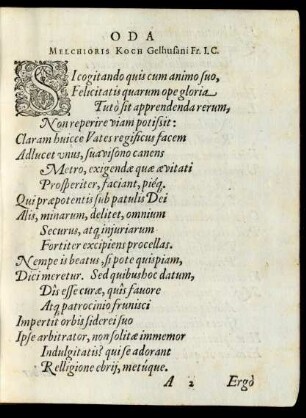 ODA
MELCHIORIS KOCH Gelhusani Fr. I. C.
SI cogitando quis cum animo suo,
Felicitatis quarum ope gloria
Tutò sit apprendenda rerum,
Non reperire viam potissit:
Claram huicce Vates regificus facem
Adlucet vnus, suaviſono canens
Metro, exigendæ quæ ævitati
Proſperiter, faciant, piéq́.
Qui præpotentis sub patulis Dei
Alis, minarum, delitet, omnium
Securus, atq; injuriarum
Fortiter excipiens procellas.
Nempe is beatus, si pote quispiam,
Dici meretur. Sed quibus hoc datum,
Dîs esse curæ, quîs fauore
Atq; patrocinio frunisci
Impertit orbis siderei suo
Ipse arbitrator, non solitæ immemor
Indulgitatis? qui se adorant
Relligione ebrij, metuque.
A 2 Ergò